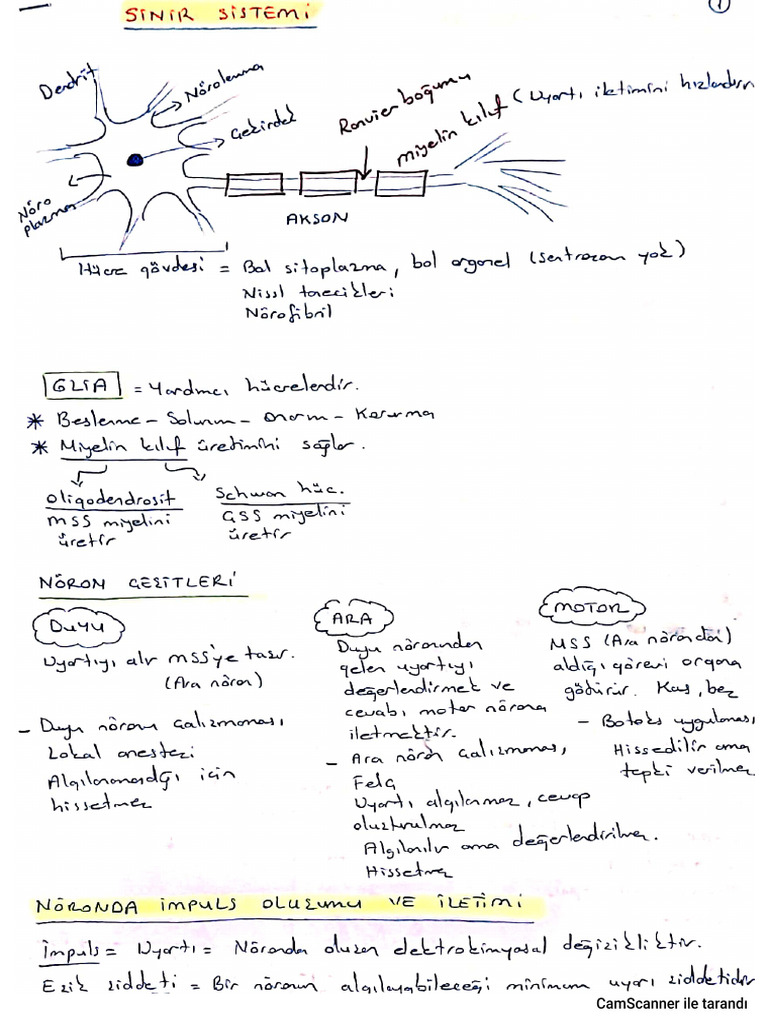 SİNİR SİSTEMİ
1
Dendrit
Nörolemma
Çekirdek
Nöro
plazma
Ranvier boğumu
miyelin kılıf (Uyartı iletimini hızlandırır
AKSON
Hücre gövdesi = Bol sitoplazma, bol organel (sentrozom yok)
Nissl tanecikleri
Nörofibril
GLİA = Yardımcı hücrelerdir.
* Beslenme - Solunum - Onarım - Koruma
* Miyelin kılıf üretimini sağlar.
Oligodendrosit
MSS miyelini
üretir
Schwan hüc.
ÇSS miyelini
üretir
NÖRON ÇEŞİTLERİ
DUYU
Uyartıyı alır MSS'ye taşır.
(Ara nöron)
- Duyu nöronu çalışmaması,
Lokal anestezi
Algılanamadığı için
hissetmez
ARA
Duyu nöronundan
gelen uyartıyı
değerlendirmek ve
cevabı motor nörona
iletmektir.
- Ara nöron çalışmaması,
Felç
Uyartı algılanmaz, cevap
oluşturulmaz
Algılanır ama değerlendirilmez.
Hissetmez
MOTOR
MSS (Ara nörondan)
aldığı görevi organa
götürür. Kas, bez
- Botoks uygulaması,
Hissedilir ama
tepki verilmez
NÖRONDA İMPULS OLUŞUMU VE İLETİMİ
İmpuls = Uyartı = Nöronda oluşan elektrokimyasal değişikliktir.
Eşik şiddeti = Bir nöronun algılayabileceği minimum uyarı şiddetidir
CamScanner ile tarandı